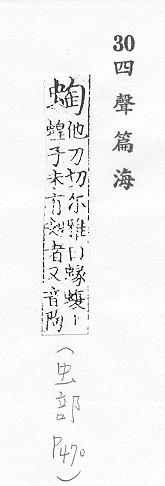 30四聲篇海
蜪
他刀切尔雅曰蝝蝮卜
蝗子未有翅者又音陶
(虫部 P470)